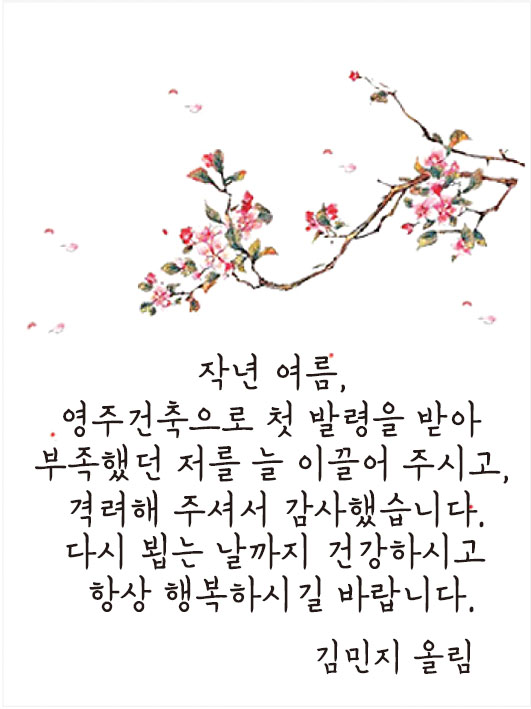 작년 여름,
영주건축으로 첫 발령을 받아
부족했던 저를 늘 이끌어 주시고,
격려해 주셔서 감사했습니다.
다시 뵙는 날까지 건강하시고
항상 행복하시길 바랍니다.
김민지 올림